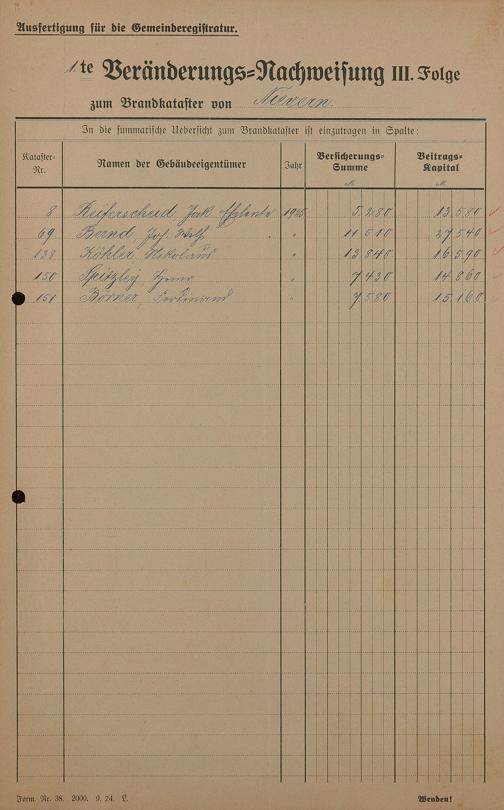 Ausfertigung für die Gemeinderegistratur.
1te Veränderungs=Nachweisung III. Folge
zum Brandkataster von Nievern.
In die summarische Uebersicht zum Brandkataster ist einzutragen in Spalte:
Kataster-Nr. Namen der Gebäudeeigentümer Jahr Versicherungs-Summe Beitrags-Kapital
M. M.
8 Reiferscheid Jak 1925 5 280 13 580
69 Bernd Joh. " 11 510 27 540
138 Köhler Nikolaus " 13 840 16 590
150 Spitzley " 7 430 14 860
151 Börner, Ferdinand " 7 580 15 160
Form. Nr. 38. 2000. 9. 24. L.
Wenden!